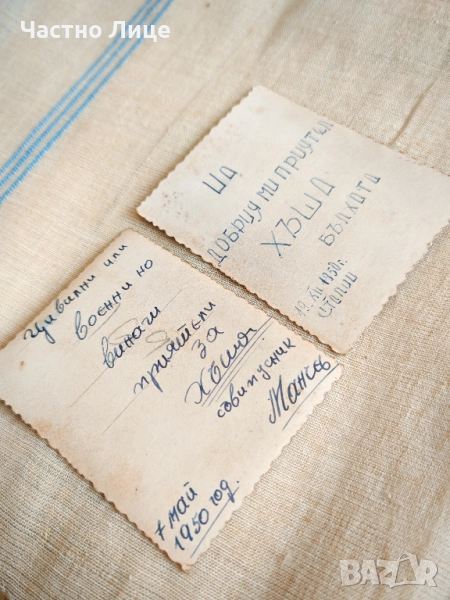 Частно Лице
На
ДОБРИЯ МИ ПРИЯТЕЛ
ХЪША
БЪЛХАТА
19. XII. 1950г.
Сталин
цивилни или
военни но
винаги
приятели
за
Хъша
съвипускник
Мансев
7 май
1950 год.
BAZAR